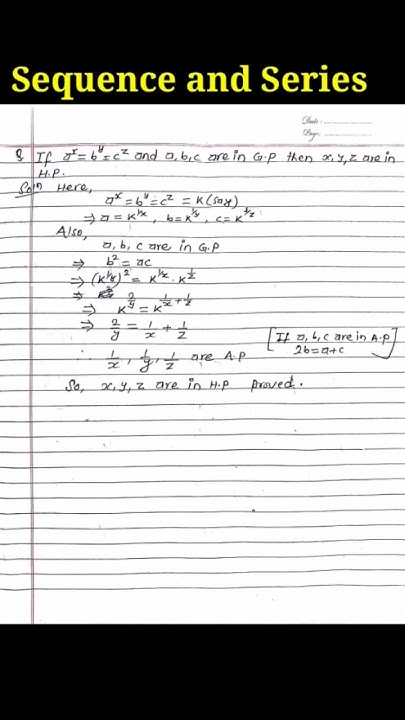 Sequence and Series
Date: ..............
Page: ..............
Q If a^x = b^y = c^z and a, b, c are in G.P then x, y, z are in
H.P.
Sol^n Here,
a^x = b^y = c^z = K (say)
⇒ a = K^{1/x}, b = K^{1/y}, c = K^{1/z}.
Also,
a, b, c are in G.P
⇒ b^2 = ac
⇒ (K^{1/y})^2 = K^{1/x} · K^{1/z}
⇒ K^{2/y} = K^{1/x + 1/z}
⇒ 2/y = 1/x + 1/z [If a, b, c are in A.P
∴ 1/x, 1/y, 1/z are A.P 2b = a+c]
So, x, y, z are in H.P proved.